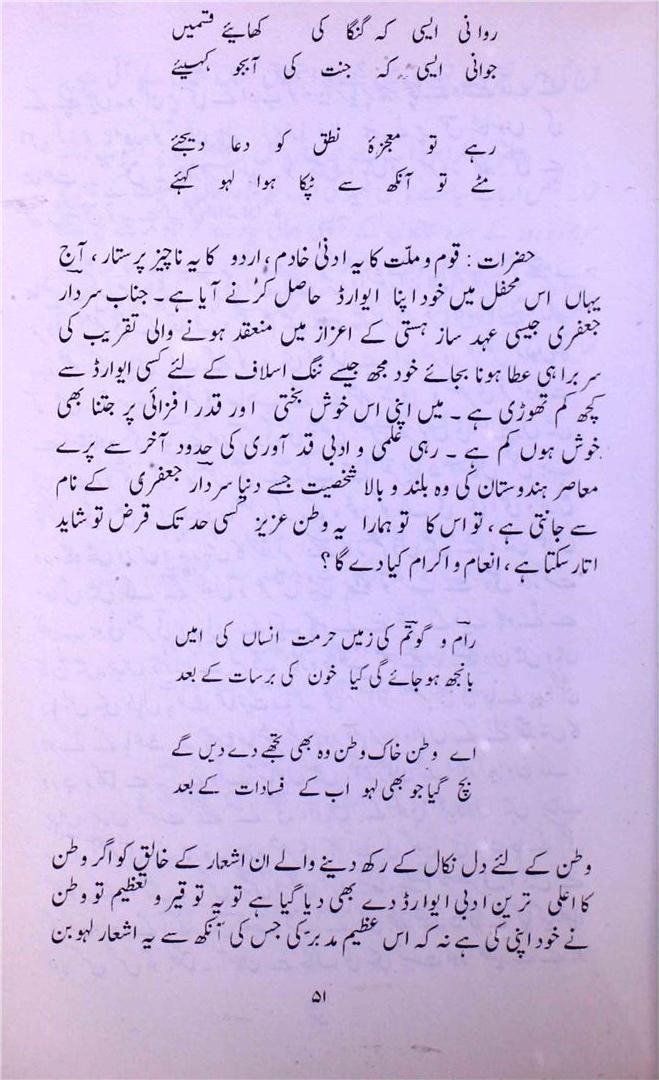 روانی ایسی کہ گنگا کی کھائیے قسمیں
جوانی ایسی کہ جنت کی آبجو کہیئے
رہے تو معجزۂ نطق کو دعا دیجئے
مٹے تو آنکھ سے ٹپکا ہوا لہو کہئے
حضرات : قوم و ملّت کا یہ ادنیٰ خادم ، اردو کا یہ ناچیز پرستار ، آج
یہاں اس محفل میں خود اپنا ایوارڈ حاصل کرنے آیا ہے ۔ جناب سردار
جعفری جیسی عہد ساز ہستی کے اعزاز میں منعقد ہونے والی تقریب کی
سربراہی عطا ہونا بجائے خود مجھ جیسے ننگ اسلاف کے لئے کسی ایوارڈ سے
کچھ کم تھوڑی ہے ۔ میں اپنی اس خوش بختی اور قدر افزائی پر جتنا بھی
خوش ہوں کم ہے ۔ رہی علمی و ادبی قد آوری کی حدود آخر سے پرے
معاصر ہندوستان کی وہ بلند و بالا شخصیت جسے دنیا سردار جعفری کے نام
سے جانتی ہے ، تو اس کا تو ہمارا یہ وطن عزیز کسی حد تک قرض تو شاید
اتار سکتا ہے ، انعام و اکرام کیا دے گا ؟
رام و گوتم کی زمیں حرمت انساں کی امیں
بانجھ ہو جائے گی کیا خون کی برسات کے بعد
اے وطن خاک وطن وہ بھی تجھے دے دیں گے
بچ گیا جو بھی لہو اب کے فسادات کے بعد
وطن کے لئے دل نکال کے رکھ دینے والے ان اشعار کے خالق کو اگر وطن
کا اعلی ترین ادبی ایوارڈ دے بھی دیا گیا ہے تو یہ توقیر و تعظیم تو وطن
نے خود اپنی کی ہے نہ کہ اس عظیم مدبر کی جس کی آنکھ سے یہ اشعار لہو بن
۵۱